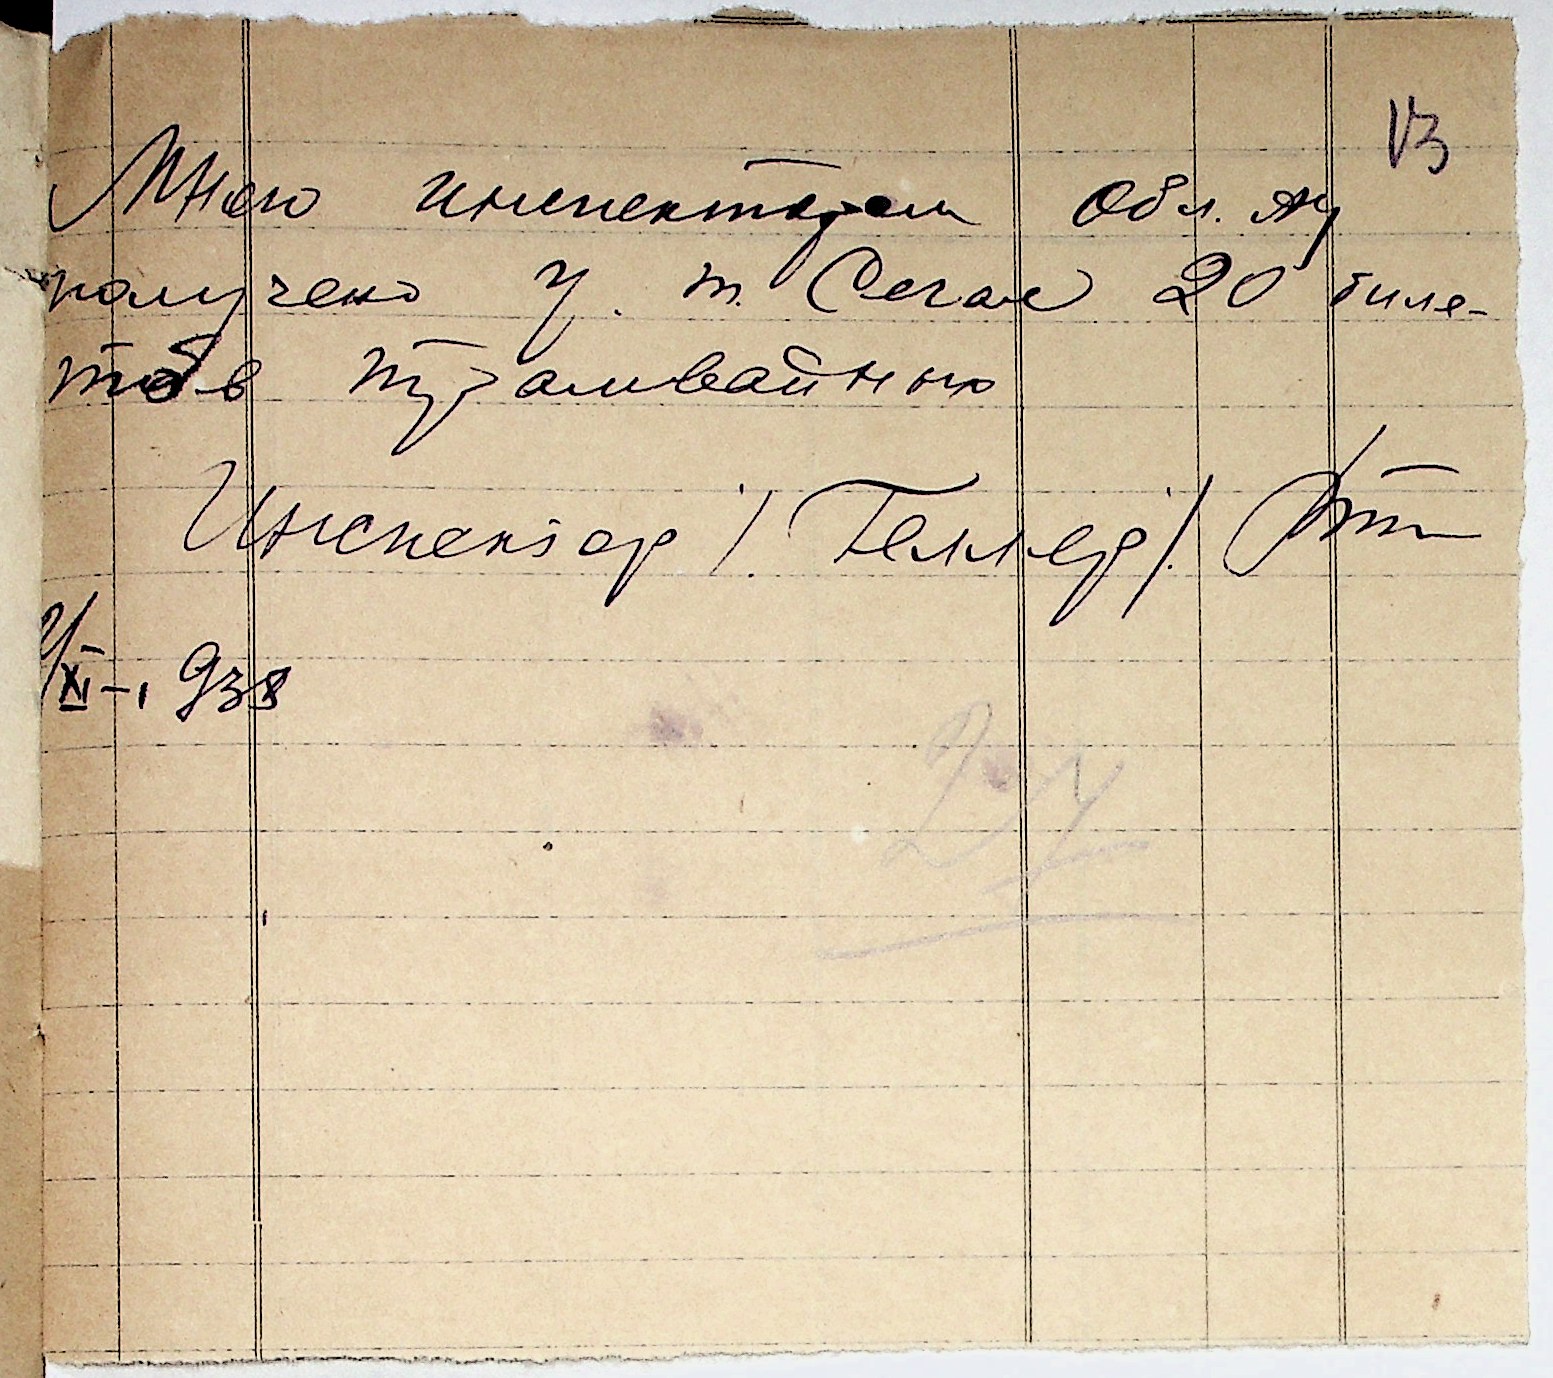 13
Мною инспектором Обл. АУ
получено у. т. Сегал 20 биле-
тов трамвайных
Инспектор /. Геллер /.
2/XI-1938